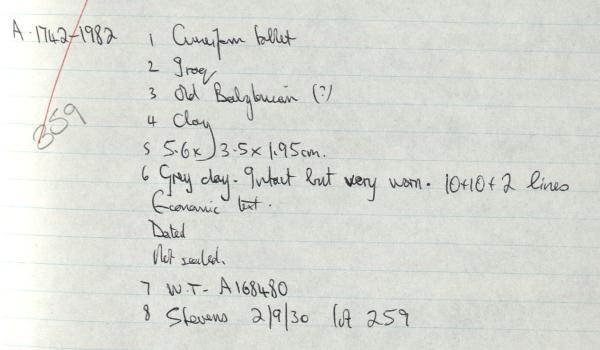 A.1742-1982 1 Cuneiform tablet
2 Iraq
3 Old Babylonian (?)
4 Clay
859
5 5.6 x 3.5 x 1.95cm.
6 Grey clay. Intact but very worn. 10+10+2 lines
Economic text.
Dated
Not sealed.
7 W.T- A168480
8 Stevens 2/9/30 lot 259